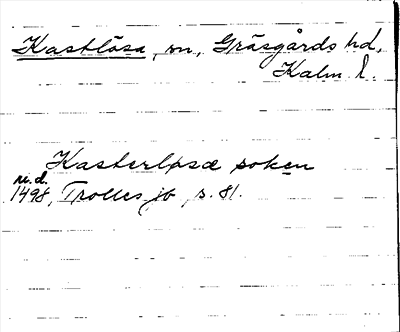 Kastlösa, sn, Gräsgårds hd,
Kalm. l.
Kasterløsæ soken
n.d.
1498, Trolles jb, s. 81.